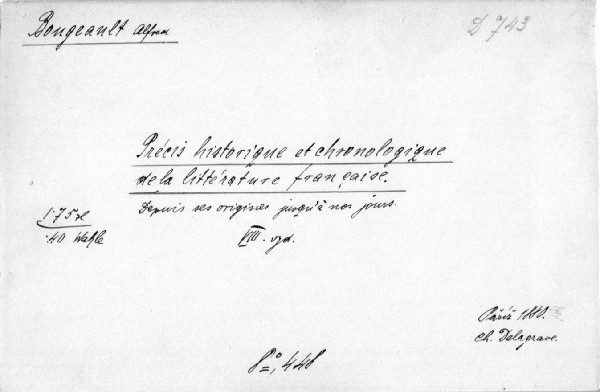 Bougeault Alfred
D 743
Précis historique et chronologique
de la littérature française.
Depuis ses origines jusqu'à nos jours.
1·75 zł
·40
VIII. vyd.
Paříž 1880.
Ch. Delagrave.
8°, 448